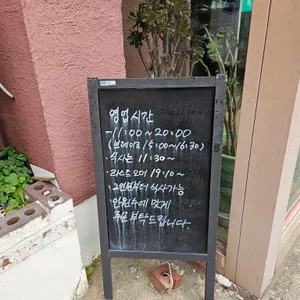 영업시간
-11:00~20:00
(브레이크 15:00~16:30)
·식사는 11:30~
·라스트오더 19:10~
·2인부터 식사가능
·인원수에 맞게
주문부탁드립니다.